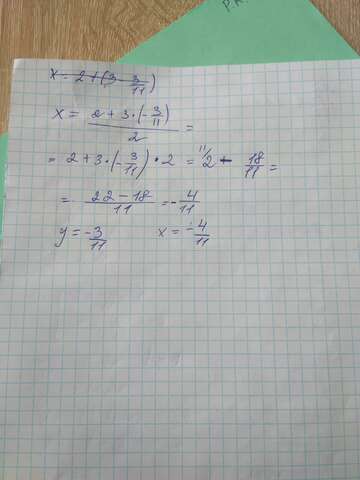 x = 2 + (3 · 3/11)
x = (2 + 3 · (-3/11))/2 =
= 2 + 3 · (-3/11) · 2 = 11/2 - 18/11 =
= (22 - 18)/11 = -4/11
y = -3/11 x = -4/11